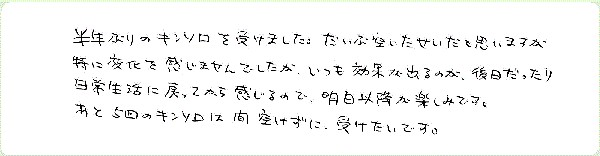 半年ぶりのキンソロを受けました。だいぶ空いたせいだと思いますが
特に変化を感じませんでしたが、いつも効果が出るのが、後日だったり
日常生活に戻ってから感じるので、明日以降が楽しみです。
あと5回のキンソロは間空けずに、受けたいです。